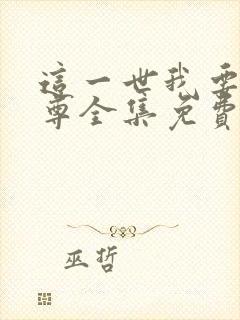 這一世我要
尊全集免費
巫哲